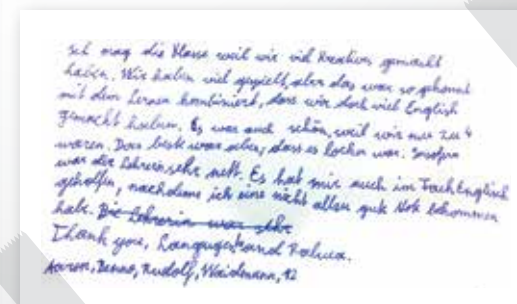 Ich mag die Klasse weil wir viel Kreatives gemacht
haben. Wir haben viel gespielt, aber das war so gekonnt
mit dem Lernen kombiniert, dass wir doch viel English
gemacht haben. Es war auch schön, weil wir nur zu 4
waren. Das beste war aber, dass es locker war. Insofern
war die Lehrerin sehr nett. Es hat mir auch im Fach Englisch
geholfen, nachdem ich eine nicht allzu gute Note bekommen
habe. Die Lehrerin war sehr
Thank you, and Raluca.
Benno, Rudolf, Waidmann, 12